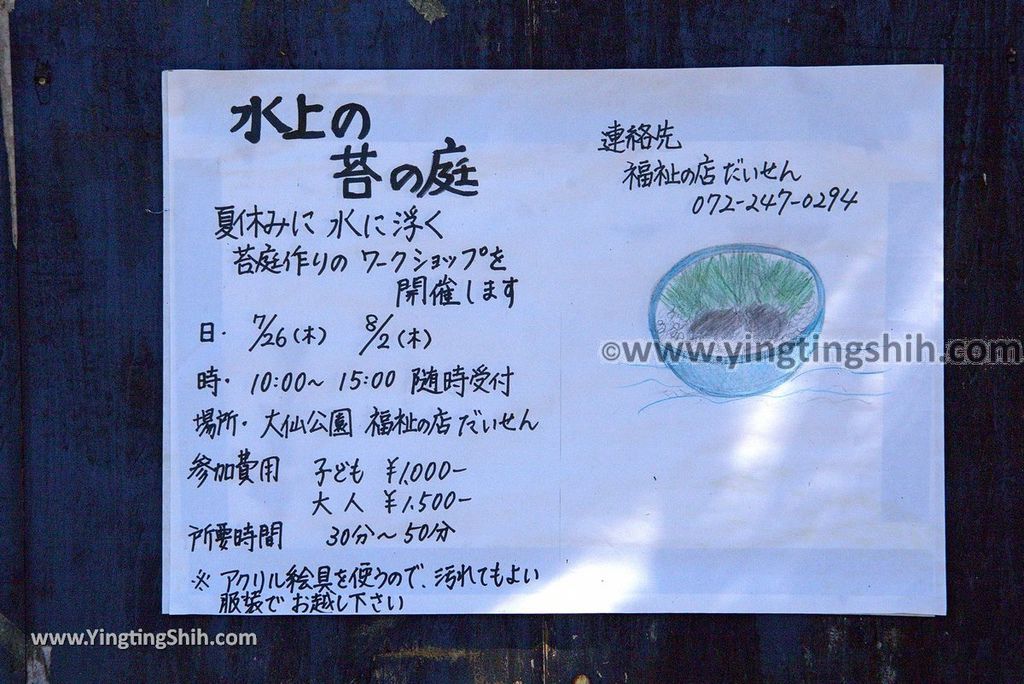 水上の
苔の庭
夏休みに 水に浮く
苔庭作りの ワークショップを
開催します
日・ 7/26(木) 8/2(木)
時・ 10:00〜 15:00 随時受付
場所・ 大仙公園 福祉の店 だいせん
参加費用 子ども ¥1,000-
大人 ¥1,500-
所要時間 30分〜50分
※ アクリル絵具を使うので、汚れてもよい
服装で お越し下さい
連絡先
福祉の店 だいせん
072-247-0294
©www.yingtingshih.com
www.YingtingShih.com